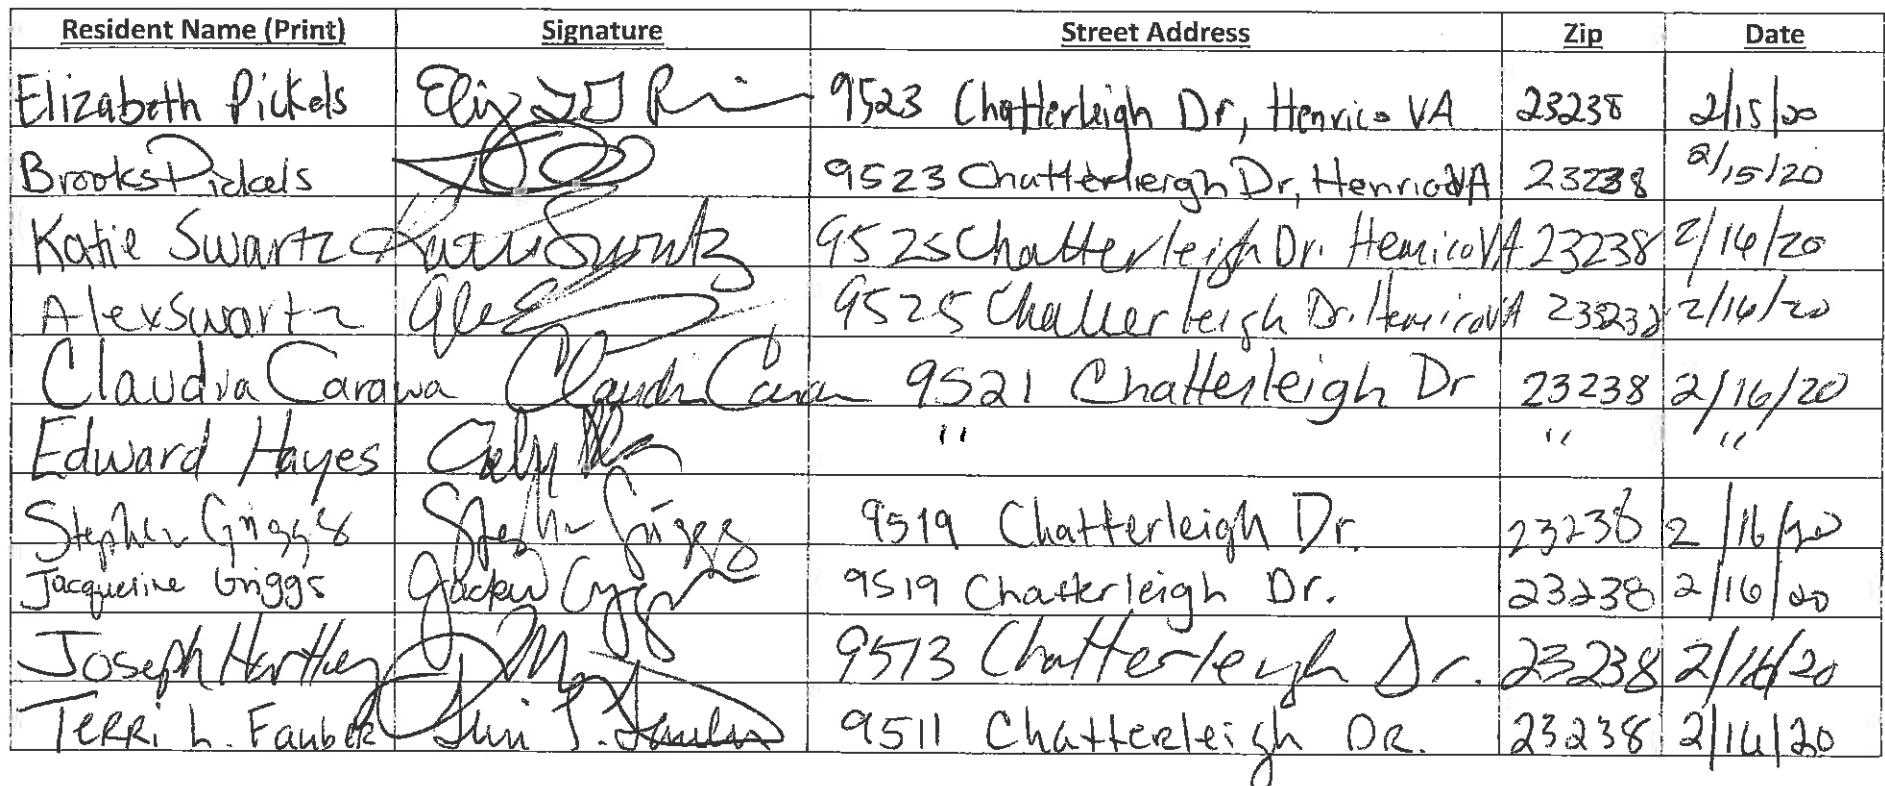 Resident Name (Print) Signature Street Address Zip Date
Elizabeth Pickels 9523 Chatterleigh Dr, Henrico VA 23238 2/15/20
Brooks Pickels 9523 Chatterleigh Dr, Henrico VA 23238 2/15/20
Katie Swartz Katie Swartz 9525 Chatterleigh Dr. Henrico VA 23238 2/16/20
Alex Swartz Alex 9525 Chatterleigh Dr. Henrico VA 23238 2/16/20
Claudia Carawa Claudia Carawa 9521 Chatterleigh Dr 23238 2/16/20
Edward Hayes " " "
Stephen Griggs Stephen Griggs 9519 Chatterleigh Dr. 23238 2/16/20
Jacqueline Griggs 9519 Chatterleigh Dr. 23238 2/16/20
Joseph Hartley 9513 Chatterleigh Dr. 23238 2/16/20
Terri L. Fauber Terri L. Fauber 9511 Chatterleigh DR. 23238 2/16/20